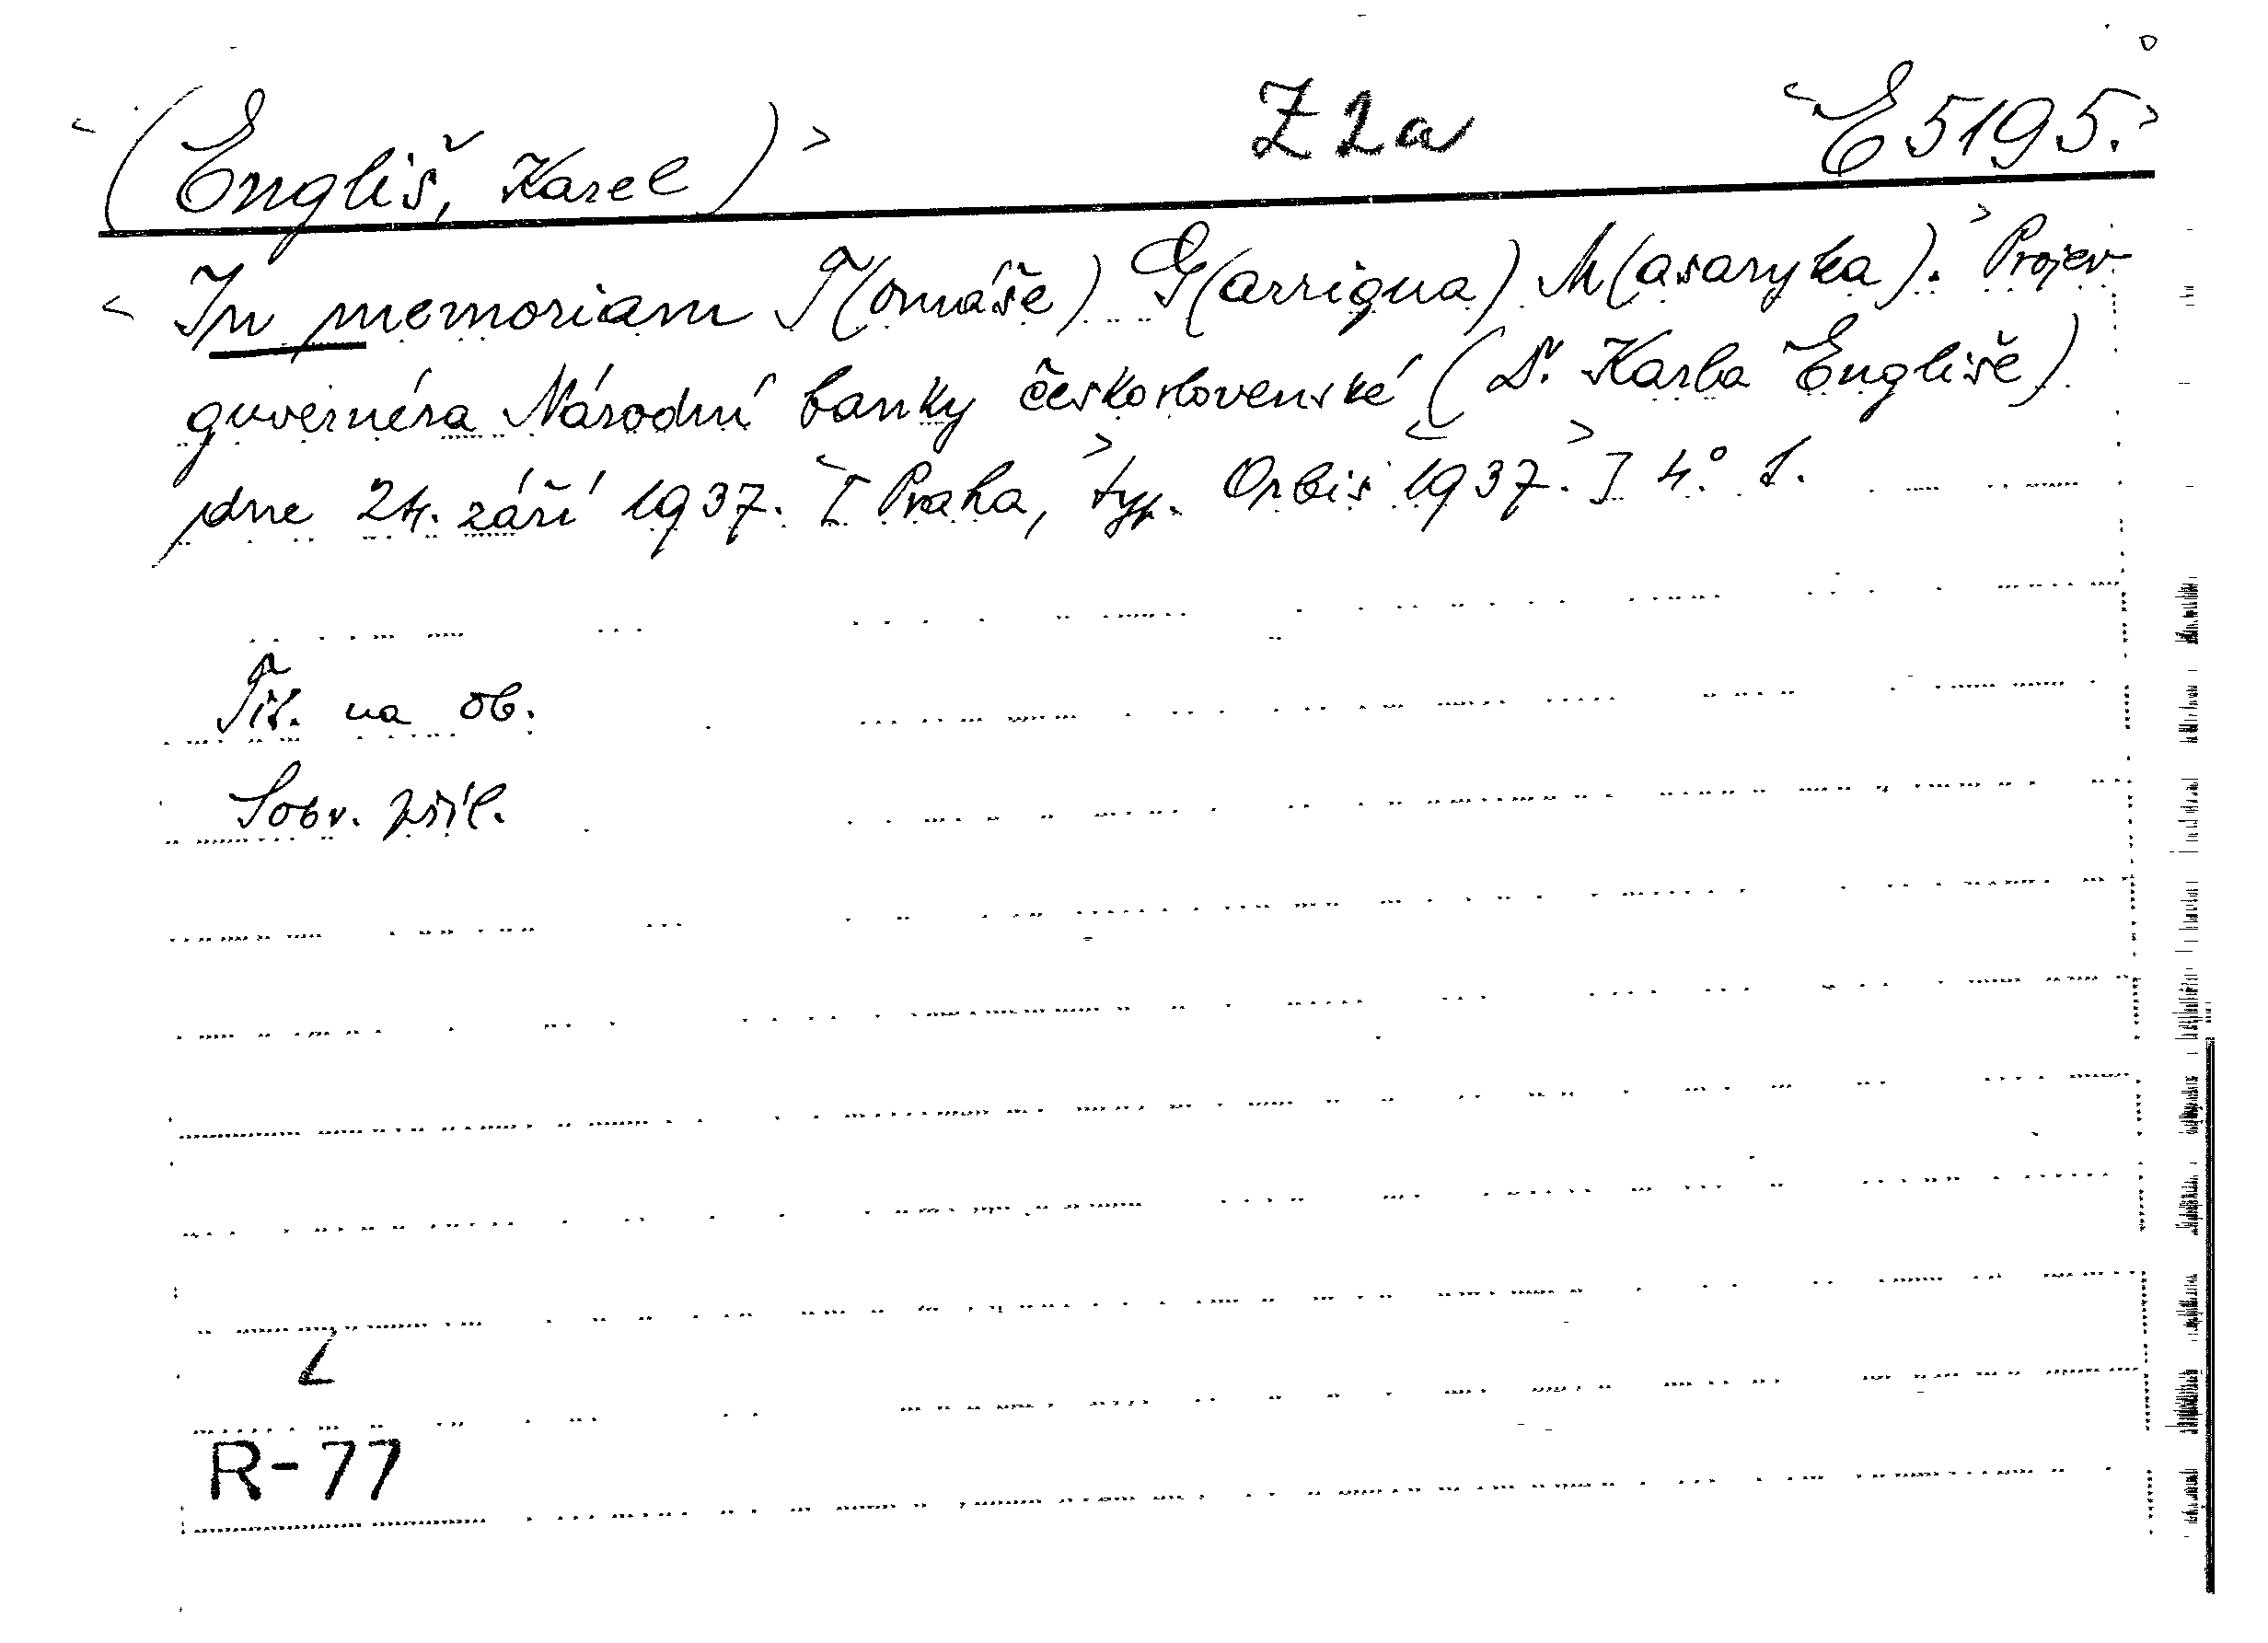 <(Engliš, Karel)> Z 2a <E 5195.>
<In memoriam T(omáše) G(arrigua) M(asaryka).> Projev
guvernéra Národní banky československé (Dr. Karla Engliše)
dne 24. září 1937. <[Praha,> typ. Orbis <1937.>] 4°. S.
Tit. na ob.
Sobr. příl.
L
R-77